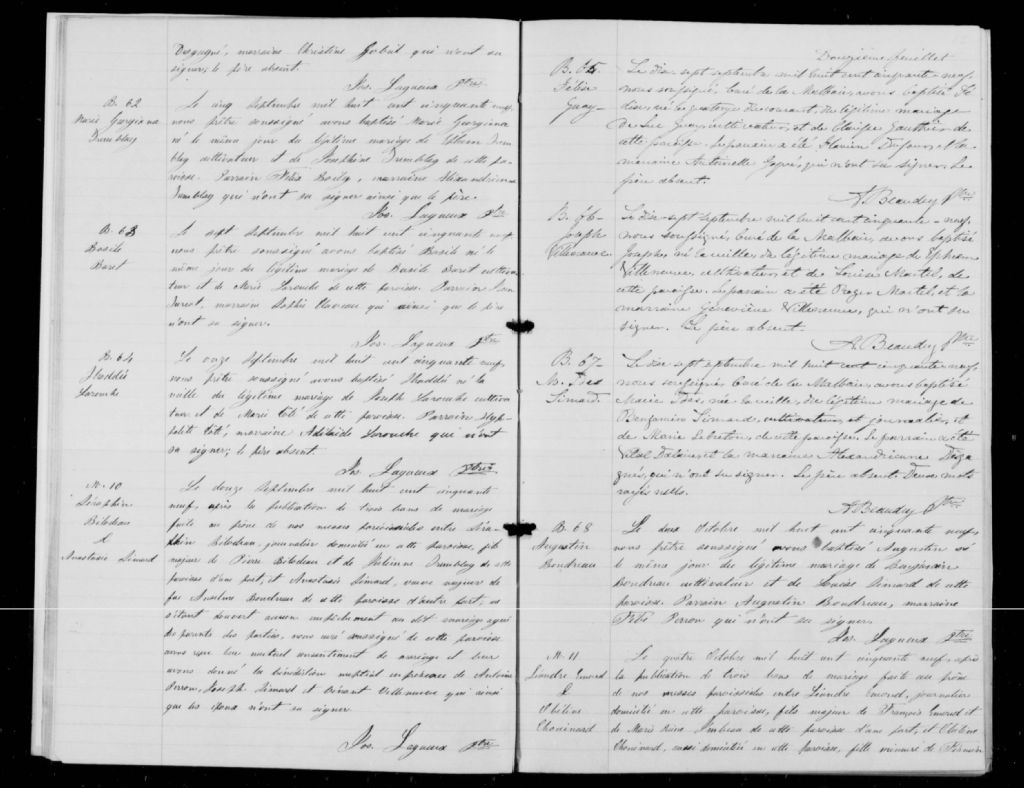 Desgagné, marraine Christine qui n'ont su
signer, le père absent.
Jos. Lagueux Ptre
B. 62
Marie Georgiana
Tremblay
Le cinq Septembre mil huit cent cinquante neuf,
nous prêtre soussigné avons baptisé Marie Georgiana
né le même jour du légitime mariage de Trem
blay cultivateur et de Joséphine Tremblay de cette pa
roisse. Parrain Félix Boily, marraine Alexandrienne
Tremblay qui n'ont su signer ainsi que le père.
Jos. Lagueux Ptre
B. 63
Basile
Le sept Septembre mil huit cent cinquante neuf
nous prêtre soussigné avons baptisé Basile né le
même jour du légitime mariage de Basile cultiva
teur et de Marie Larouche de cette paroisse. Parrain
marraine Sophie qui ainsi que le père
n'ont su signer.
Jos. Lagueux Ptre
B. 64
Thaddée
Larouche
Le onze Septembre mil huit cent cinquante neuf,
nous prêtre soussigné avons baptisé Thaddée né la
veille du légitime mariage de Joseph Larouche cultiva
teur et de Marie Côté de cette paroisse. Parrain Hyp
polite Côté, marraine Adélaïde Larouche qui n'ont
su signer; le père absent.
Jos. Lagueux Ptre
M. 10
Séraphin
Bilodeau
&
Anastasie Simard
Le douze Septembre mil huit cent cinquante
neuf, après la publication de trois bans de mariage
faite au prône de nos messes paroissiales entre Séra
phin Bilodeau, journalier domicilié en cette paroisse, fils
majeur de Pierre Bilodeau et de Julienne Tremblay de cette
paroisse d'une part, et Anastasie Simard, veuve majeure de
feu Anselme Boudreau de cette paroisse d'autre part; ne
s'étant découvert aucun empêchement au dit mariage
de parenté des parties, nous curé soussigné de cette paroisse
avons reçu leur mutuel consentement de mariage et leur
avons donné la bénédiction nuptiale en présence de Antoine
Perron, Joseph Simard et Villeneuve qui ainsi
que les époux n'ont su signer
Jos. Lagueux Ptre
Douzième feuillet
B. 65
Félix
Guay
Le dix sept septembre mil huit cent cinquante-neuf,
nous soussigné, Curé de la Malbaie, avons baptisé Fé
lix, né le quatorze du courant, du légitime mariage
de Luc Guay, cultivateur, et de Gauthier de
cette paroisse. Le parrain a été Flavien Dufour, et la
marraine Antoinette qui n'ont su signer. Le
père absent.
A. Beaudry Ptre
B. 66
Joseph
Villeneuve
Le dix-sept septembre mil huit cent cinquante-neuf,
nous soussigné, Curé de la Malbaie, avons baptisé
Joseph, né la veille, du légitime mariage de Ephrem
Villeneuve, cultivateur, et de Louise Martel, de
cette paroisse. Le parrain a été Roger Martel, et la
marraine Geneviève Villeneuve, qui n'ont su
signer. Le père absent.
A. Beaudry Ptre
B. 67
M.
Simard
Le dix sept septembre mil huit cent cinquante neuf,
nous soussigné, Curé de la Malbaie, avons baptisé
Marie née la veille, du légitime mariage de
Benjamin Simard, cultivateur, et journalier, et
de Marie Lebreton, de cette paroisse. Le parrain a été
et la marraine Alexandrienne Desga
gnés, qui n'ont su signer. Le père absent. Deux mots
rayés nuls.
A. Beaudry Ptre
B. 68
Augustin
Boudreau
Le deux Octobre mil huit cent cinquante neuf,
nous prêtre soussigné avons baptisé Augustin né
le même jour du légitime mariage de
Boudreau cultivateur et de Simard de cette
paroisse. Parrain Augustin Boudreau, marraine
Perron qui n'ont su signer.
Jos. Lagueux Ptre
M. 11
Léandre Emond
&
Chouinard
Le quatre Octobre mil huit cent cinquante neuf, après
la publication de trois bans de mariage faite au prône
de nos messes paroissiales entre Léandre Emond, journalier
domicilié en cette paroisse, fils majeur de François Emond et
de Marie de cette paroisse d'une part, et
Chouinard, aussi domiciliée en cette paroisse, fille mineure de